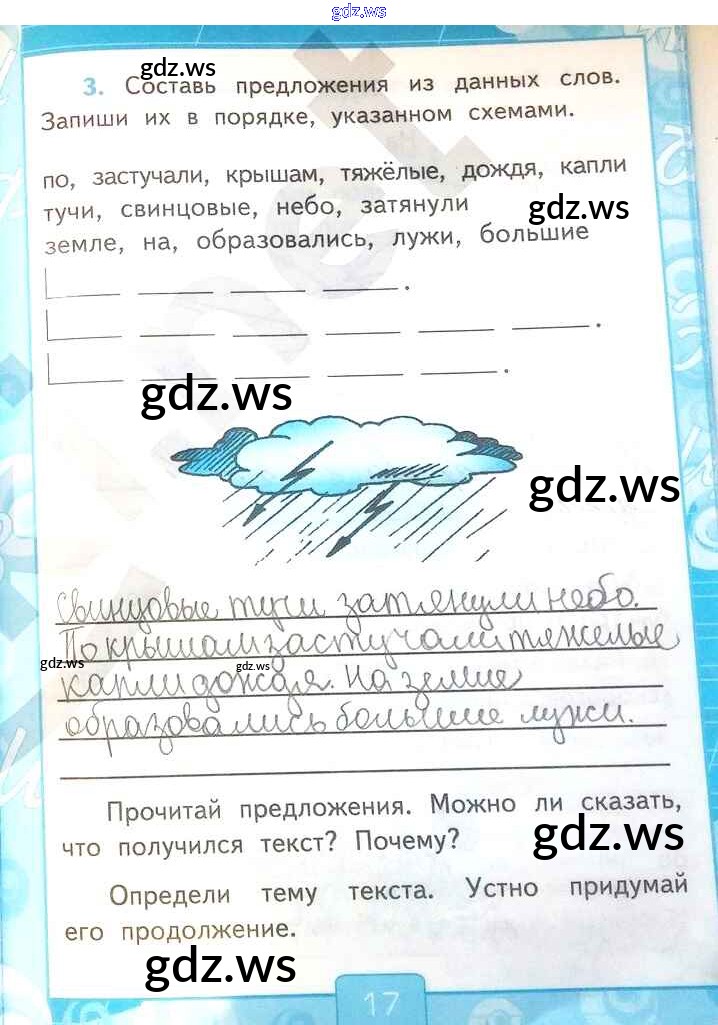 gdz.ws
gdz.ws
3. Составь предложения из данных слов.
Запиши их в порядке, указанном схемами.
по, застучали, крышам, тяжёлые, дождя, капли
тучи, свинцовые, небо, затянули
gdz.ws
земле, на, образовались, лужи, большие
gdz.ws
gdz.ws
Свинцовые тучи затянули небо.
По крышам застучали тяжелые
gdz.ws
gdz.ws
капли дождя. На земле
образовались большие лужи.
Прочитай предложения. Можно ли сказать,
что получился текст? Почему?
gdz.ws
Определи тему текста. Устно придумай
его продолжение.
gdz.ws
17